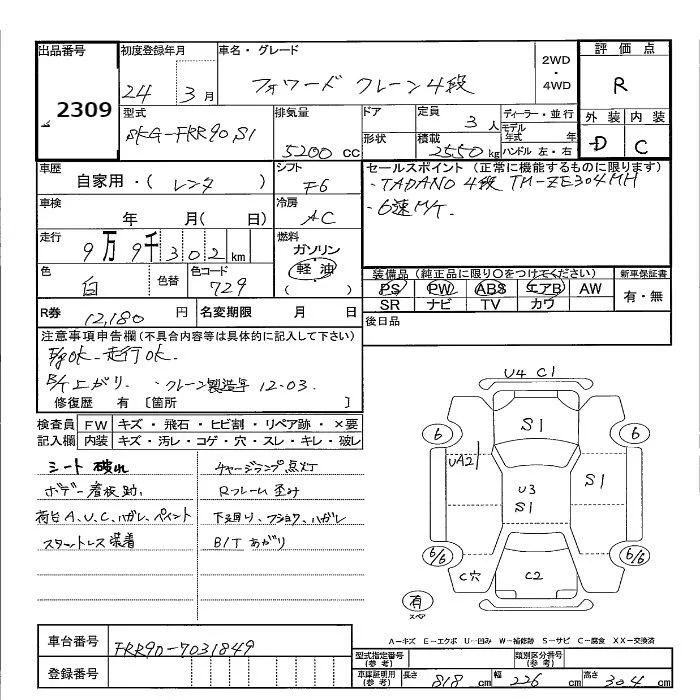 出品番号
2309
初度登録年月
24年 3月
車名・グレード
フォワード クレーン4段
2WD
・
4WD
評価点
R
外装 内装
D C
型式
SKG-FRR90S1
排気量
5200 cc
ドア
形状
定員
3人
積載
2550 kg
ディーラー・並行
モデル
年式 年
ハンドル 左・右
車歴
自家用・( レンタ )
シフト
F6
車検
年 月( 日)
冷房
AC
走行
9万9千302 km
燃料
ガソリン
軽油
( )
色
白
色替
色コード
729
R券
12,180 円
名変期限 月 日
セールスポイント (正常に機能するものに限ります)
・TADANO 4段 TM-ZE304MH
・6速M/T.
装備品 (純正品に限り〇をつけてください)
PS PW ABS エアB AW
SR ナビ TV カワ
新車保証書
有・無
後日品
注意事項申告欄 (不具合内容等は具体的に記入して下さい)
E/gOK-走行OK.
B/T上がり. ・クレーン製造年 12-03.
修復歴 有〔箇所 〕
検査員
記入欄
FW キズ・飛石・ヒビ割・リペア跡・×要
内装 キズ・汚レ・コゲ・穴・スレ・キレ・破レ
シート 破れ
ボデー看板跡.
荷台A、U、C、ハガレ、ペイント
スタットレス装着
チャージランプ点灯
Rフレーム歪み
下廻り、フショク、ハガレ
B/T あがり
U4 C1
S1
6
6
UA2
U3
S1
S1
6/6
6/6
C穴
C2
有
スペア
A-キズ E-エクボ U-凹み W-補修跡 S-サビ C-腐食 XX-交換済
車台番号
FRR90-7031849
登録番号
型式指定番号
(参考)
類別区分番号
(参考)
車庫証明用
(参考)
長さ 818 cm 幅 226 cm 高さ 304 cm